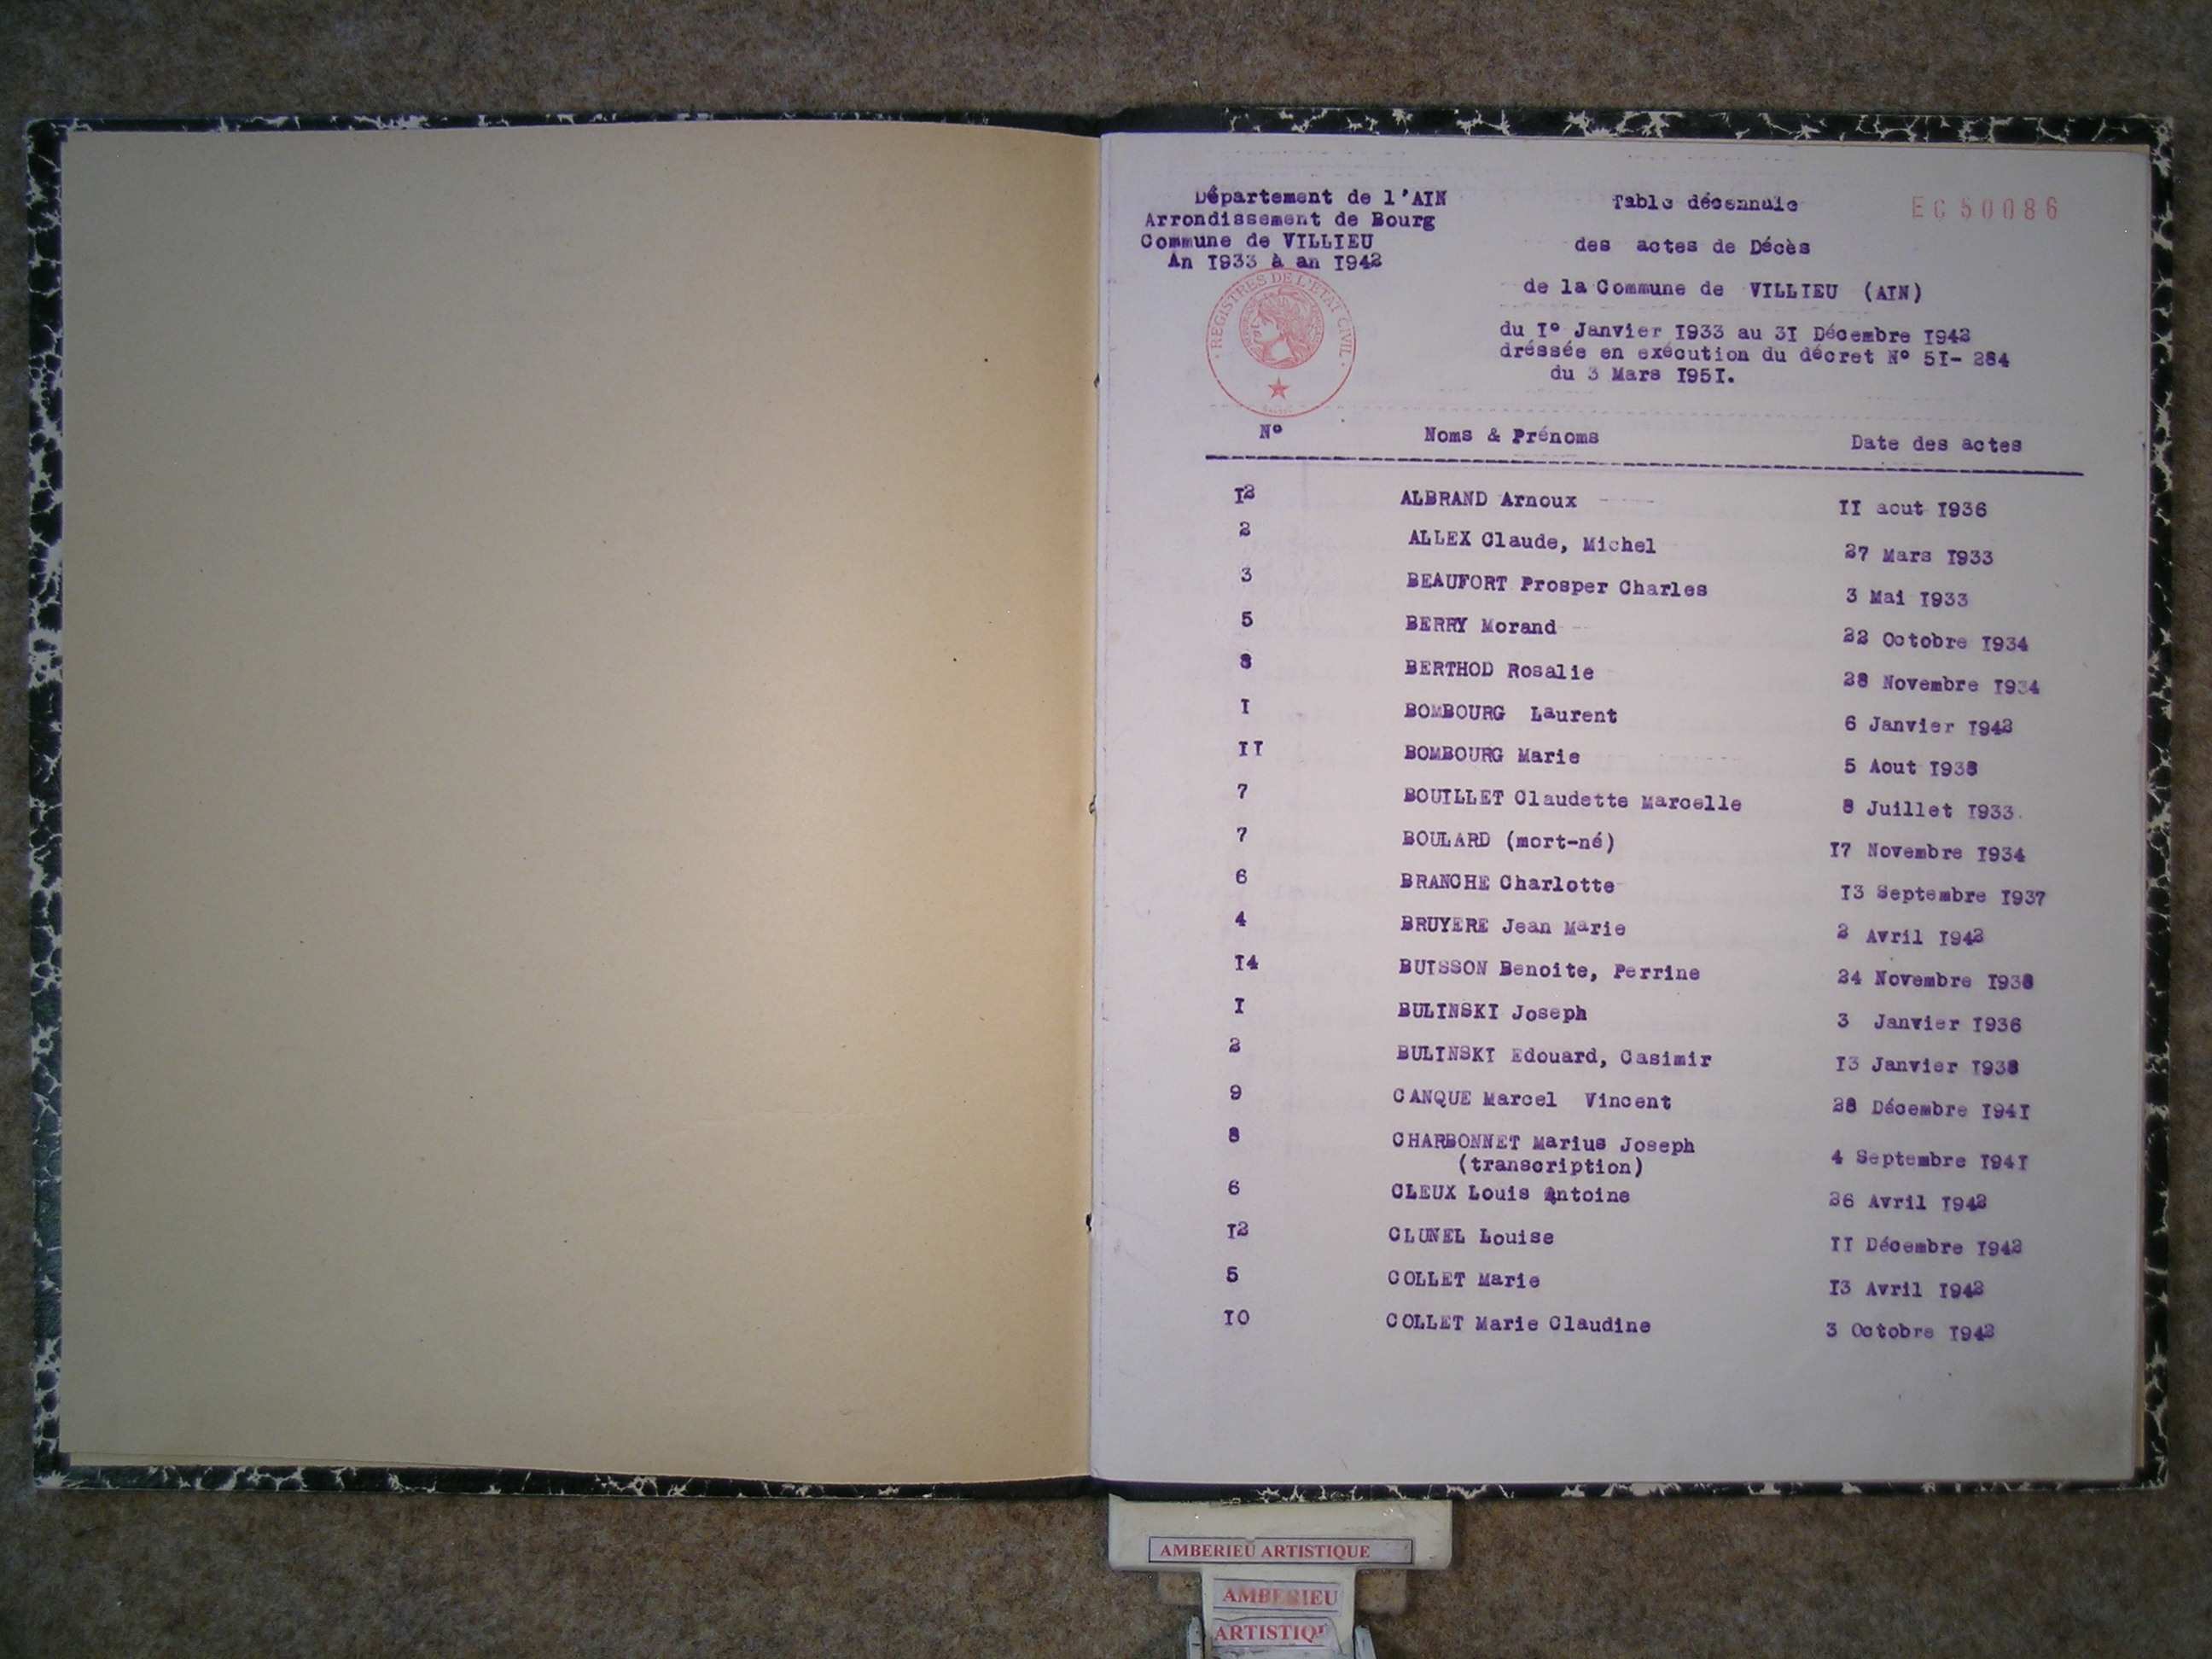 Département de l'AIN
Arrondissement de Bourg
Commune de VILLIEU
An I933 à an I942
REGISTRES DE L'ETAT CIVIL
Table décennale
EC 50086
des actes de Décès
de la Commune de VILLIEU (AIN)
du I° Janvier I933 au 3I Décembre I942
dréssée en exécution du décret N° 5I- 284
du 3 Mars I95I.
N° Noms & Prénoms Date des actes
I2 ALBRAND Arnoux II aout I936
2 ALLEX Claude, Michel 27 Mars I933
3 BEAUFORT Prosper Charles 3 Mai I933
5 BERRY Morand 22 Octobre I934
8 BERTHOD Rosalie 28 Novembre I934
I BOMBOURG Laurent 6 Janvier I942
II BOMBOURG Marie 5 Aout I938
7 BOUILLET Claudette Marcelle 8 Juillet I933.
7 BOULARD (mort-né) I7 Novembre I934
6 BRANCHE Charlotte I3 Septembre I937
4 BRUYERE Jean Marie 2 Avril I942
I4 BUISSON Benoite, Perrine 24 Novembre I938
I BULINSKI Joseph 3 Janvier I936
2 BULINSKI Edouard, Casimir I3 Janvier I938
9 CANQUE Marcel Vincent 28 Décembre I94I
8 CHARBONNET Marius Joseph 4 Septembre I94I
(transcription)
6 CLEUX Louis Antoine 26 Avril I942
I2 CLUNEL Louise II Décembre I942
5 COLLET Marie I3 Avril I942
IO COLLET Marie Claudine 3 Octobre I942
AMBERIEU ARTISTIQUE
AMBERIEU
ARTISTIQ